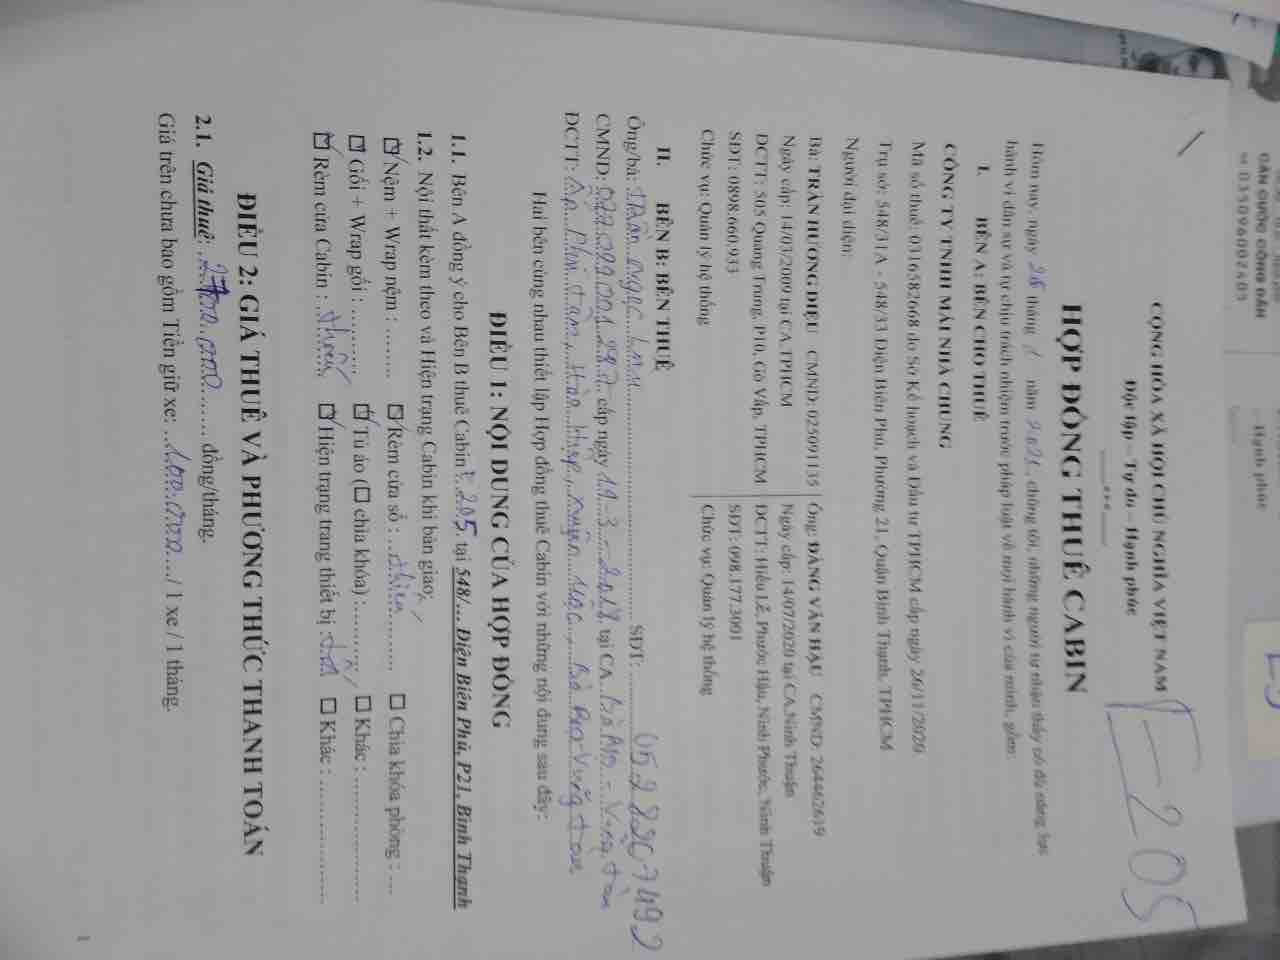 CỘNG HÒA XÃ HỘI CHỦ NGHĨA VIỆT NAM
Độc lập – Tự do – Hạnh phúc
F205
HỢP ĐỒNG THUÊ CABIN
Hôm nay, ngày 26 tháng 1 năm 2021, chúng tôi, những người tự nhận thấy có đủ năng lực
hành vi dân sự và tự chịu trách nhiệm trước pháp luật về mọi hành vi của mình, gồm:
I. BÊN A: BÊN CHO THUÊ
CÔNG TY TNHH MÁI NHÀ CHUNG
Mã số thuế: 0316582668 do Sở Kế hoạch và Đầu tư TPHCM cấp ngày 26/11/2020
Trụ sở: 548/31A - 548/33 Điện Biên Phủ, Phường 21, Quận Bình Thạnh, TPHCM
Người đại diện:
Bà: TRẦN HƯƠNG DIỆU CMND: 025091135
Ngày cấp: 14/03/2009 tại CA.TPHCM
ĐCTT: 505 Quang Trung, P10, Gò Vấp, TPHCM
SĐT: 0898.660.933
Chức vụ: Quản lý hệ thống
Ông: ĐÀNG VĂN HẬU CMND: 264462619
Ngày cấp: 14/07/2020 tại CA.Ninh Thuận
ĐCTT: Hiếu Lễ, Phước Hậu, Ninh Phước, Ninh Thuận
SĐT: 098.177.3001
Chức vụ: Quản lý hệ thống
II. BÊN B: BÊN THUÊ
Ông/bà: Trần Ngọc Lam SĐT: 0528267492
CMND: cấp ngày 19-3-2018 tại CA
ĐCTT: ấp Phú Tâm, Hòa Hiệp, Xuyên Mộc, Bà Rịa Vũng Tàu
Hai bên cùng nhau thiết lập Hợp đồng thuê Cabin với những nội dung sau đây:
ĐIỀU 1: NỘI DUNG CỦA HỢP ĐỒNG
1.1. Bên A đồng ý cho Bên B thuê Cabin F205 tại 548/... Điện Biên Phủ, P21, Bình Thạnh
1.2. Nội thất kèm theo và Hiện trạng Cabin khi bàn giao:
☑ Nệm + Wrap nệm : ........ ☑ Rèm cửa sổ : ........ ☐ Chìa khóa phòng : ...
☑ Gối + Wrap gối : .......... ☑ Tủ áo (☐ chìa khóa) : .......... ☐ Khác : ..................
☑ Rèm cửa Cabin : ........ ☑ Hiện trạng trang thiết bị ........ ☐ Khác : ..................
ĐIỀU 2: GIÁ THUÊ VÀ PHƯƠNG THỨC THANH TOÁN
2.1. Giá thuê: ........ đồng/tháng.
Giá trên chưa bao gồm Tiền giữ xe: ........ / 1 xe / 1 tháng.
1
CĂN CƯỚC CÔNG DÂN
035096007605
Hạnh phúc